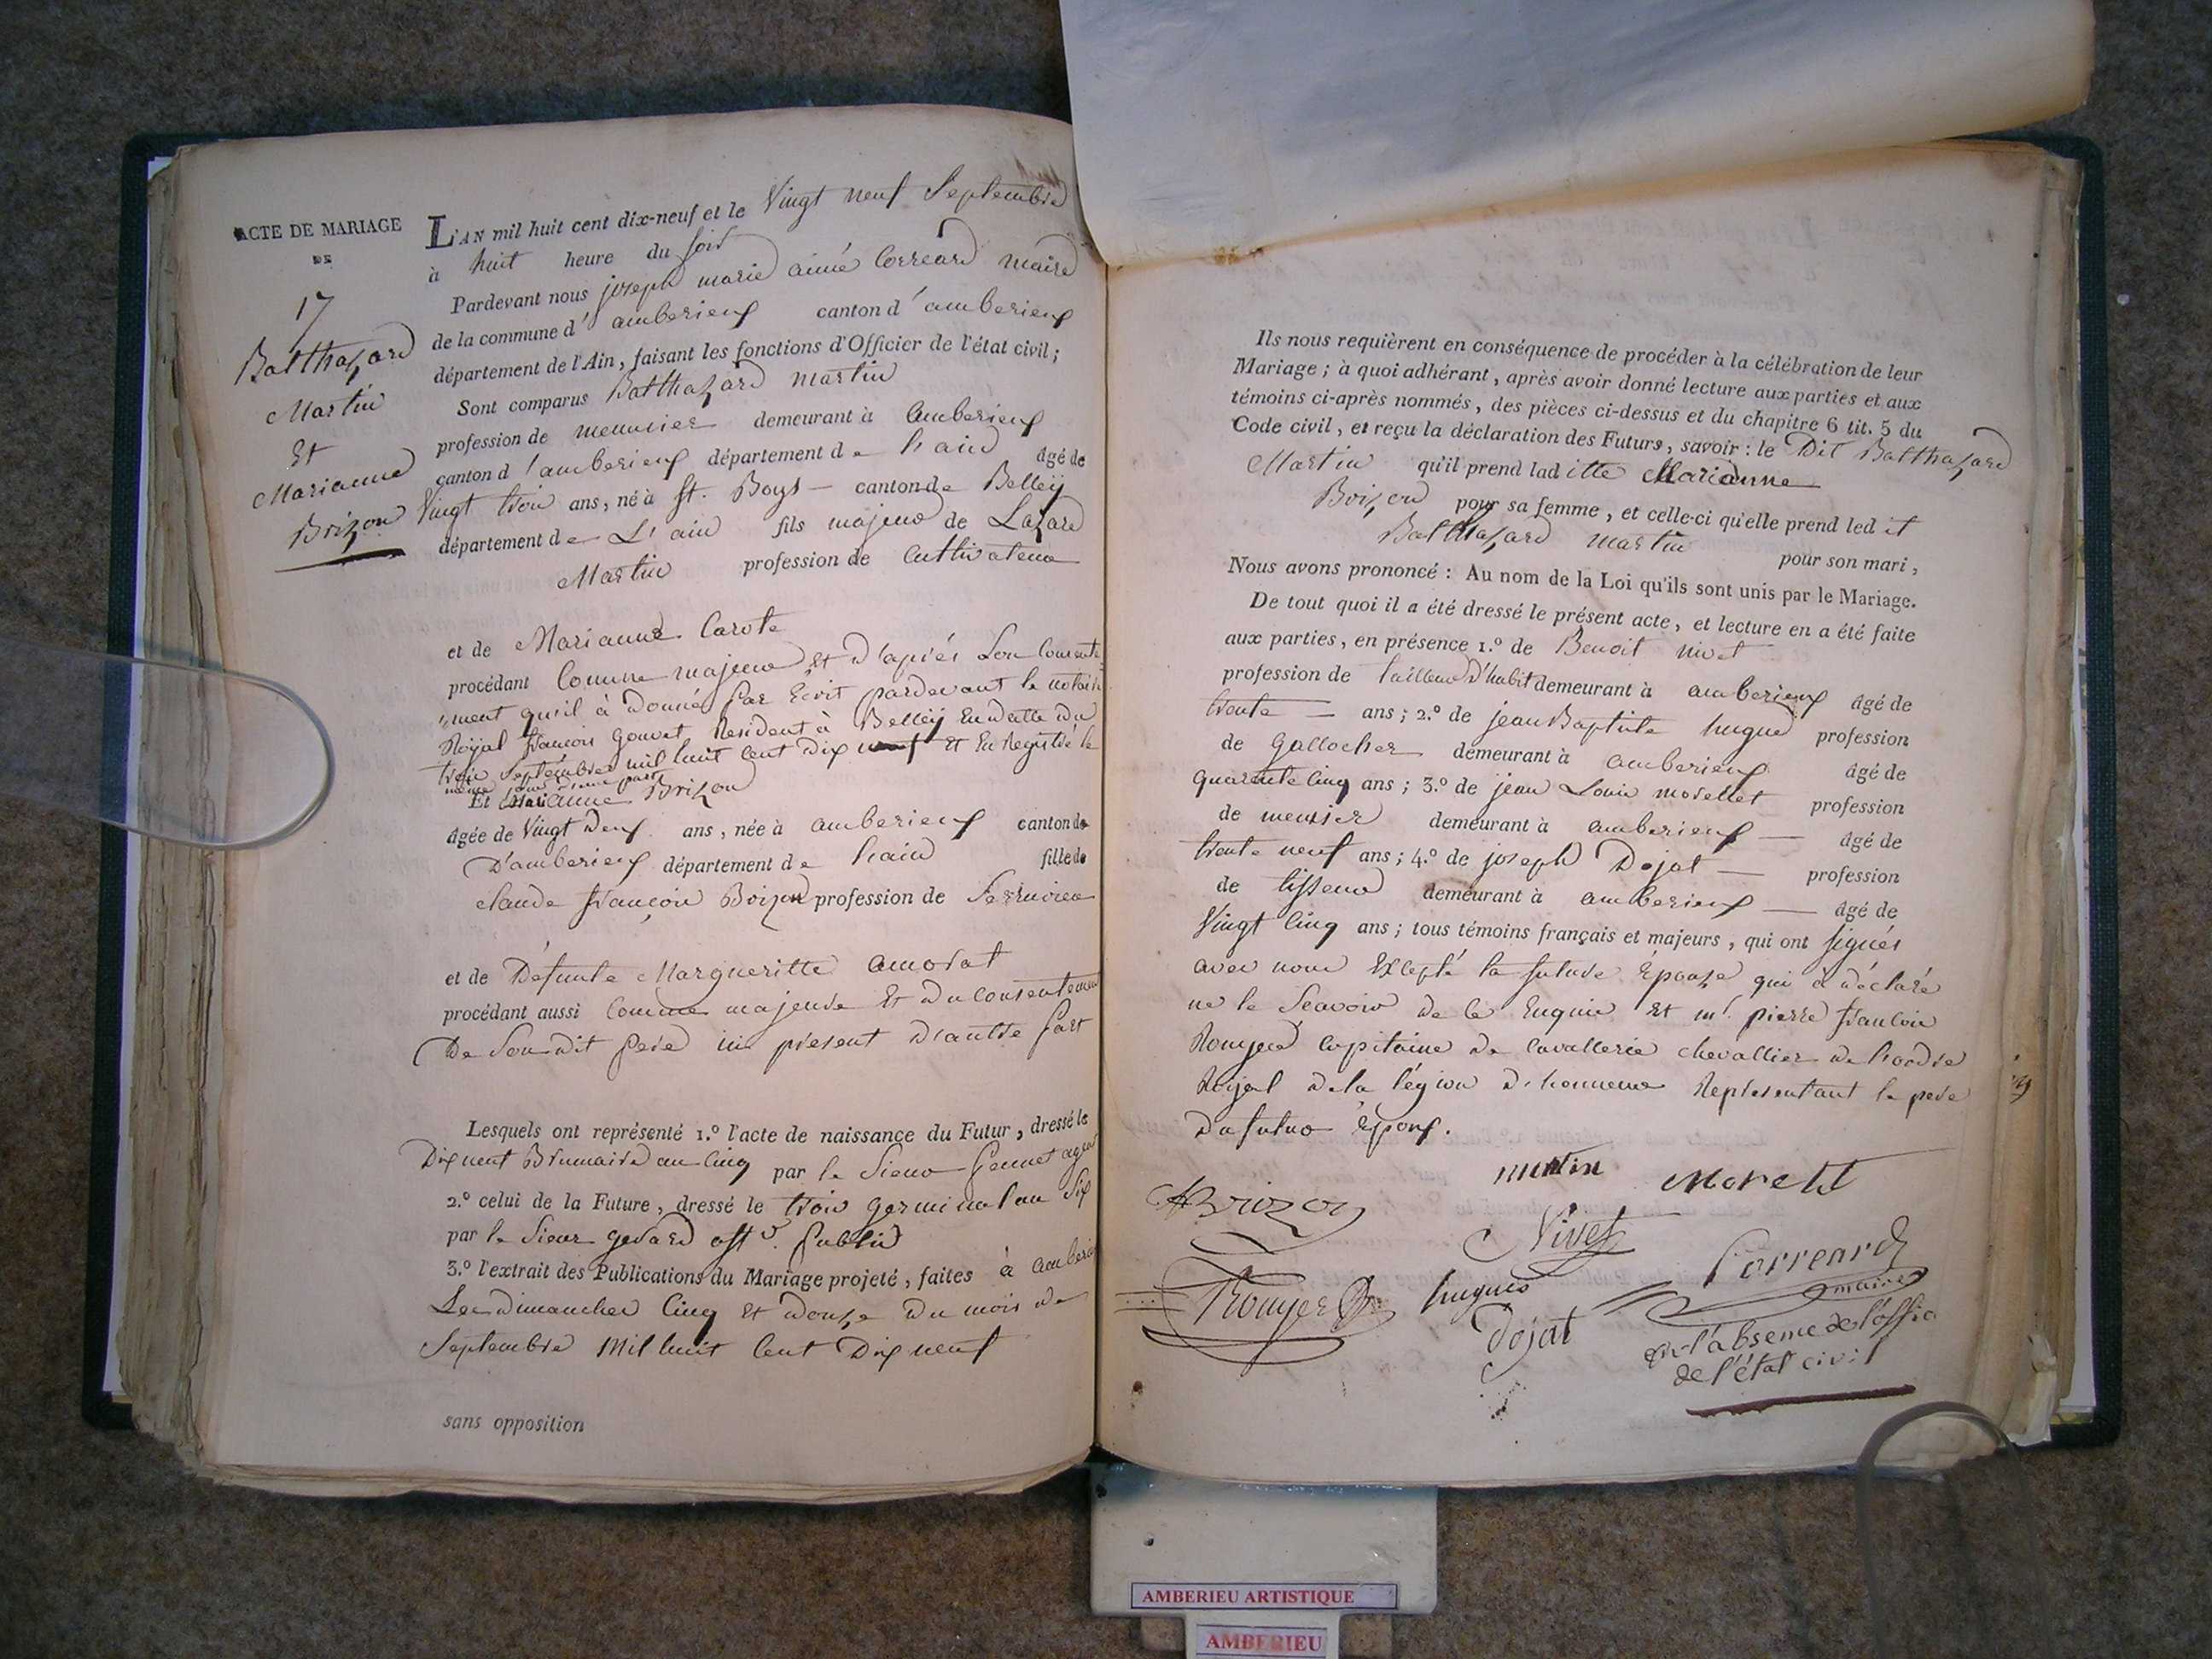 ACTE DE MARIAGE
DE
17
Balthazard
Martin
Et
Marianne
Brizon
L'AN mil huit cent dix-neuf et le Vingt neuf Septembre
à huit heure du soir
Pardevant nous joseph marie aimé Correard maire
de la commune d'amberieux canton d'amberieux
département de l'Ain, faisant les fonctions d'Officier de l'état civil;
Sont comparus Balthazard martin
profession de menuisier demeurant à amberieux
canton d'amberieux département de l'ain âgé de
Vingt trois ans, né à St. Boys — canton de Belleÿ
département de L'ain fils majeur de Lazard
Martin profession de Cultivateur
et de Marianne Carote
procédant Comme majeur et d'aprés Son Consente
"ment qu'il à donné par Ecrit pardevant le notaire
Royal françois gouvet Resident à Belleÿ En datte du
trois Septembre mil huit cent dix neuf et Enregistré le
même jour d'une part
Et Marianne Brizon
âgée de Vingt deux ans, née à amberieux canton de
D'amberieux département de l'ain fille de
claude françois Brizon profession de Serrurier
et de Défunte Margueritte amorat
procédant aussi Comme majeure Et du consentement
De Son dit pere ici présent d'autre part
Lesquels ont représenté 1.º l'acte de naissance du Futur, dressé le
Dix neuf Brumaire an cinq par le Sieur agent
2.º celui de la Future, dressé le trois germinal an Six
par le Sieur gerard offr. public
3.º l'extrait des Publications du Mariage projeté, faites à amberieu
Les dimanches Cinq et douze du mois de
Septembre Mil huit Cent Dix neuf
sans opposition
Ils nous requièrent en conséquence de procéder à la célébration de leur
Mariage; à quoi adhérant, après avoir donné lecture aux parties et aux
témoins ci-après nommés, des pièces ci-dessus et du chapitre 6 tit. 5 du
Code civil, et reçu la déclaration des Futurs, savoir: le Dit Balthazard
Martin qu'il prend laditte Marianne
Brizon pour sa femme, et celle-ci qu'elle prend ledit
Balthazard martin pour son mari,
Nous avons prononcé: Au nom de la Loi qu'ils sont unis par le Mariage.
De tout quoi il a été dressé le présent acte, et lecture en a été faite
aux parties, en présence 1.º de Benoit nivet
profession de tailleur D'habit demeurant à amberieux âgé de
trente — ans; 2.º de jean Baptiste hugue profession
de Gallocher demeurant à amberieux âgé de
quarente cinq ans; 3.º de jean Louis morellet profession
de demeurant à amberieux — âgé de
trente neuf ans; 4.º de joseph Dojat — profession
de tisseur demeurant à amberieux — âgé de
Vingt Cinq ans; tous témoins français et majeurs, qui ont signés
avec nous Excepté la future Epouze qui à déclaré
ne le Scavoir de ce Enquis Et mr. pierre françois
Rouyer Capitaine de Cavallerie chevallier de l'ordre
Royal de la légion d'honneur Représentant le pere
du futur Epoux.
martin
Morellet
Brizon
Nivet
Correard
maire
Rouyer
hugues
Dojat
en l'absence de l'offic
de l'état civil
AMBERIEU ARTISTIQUE
AMBERIEU